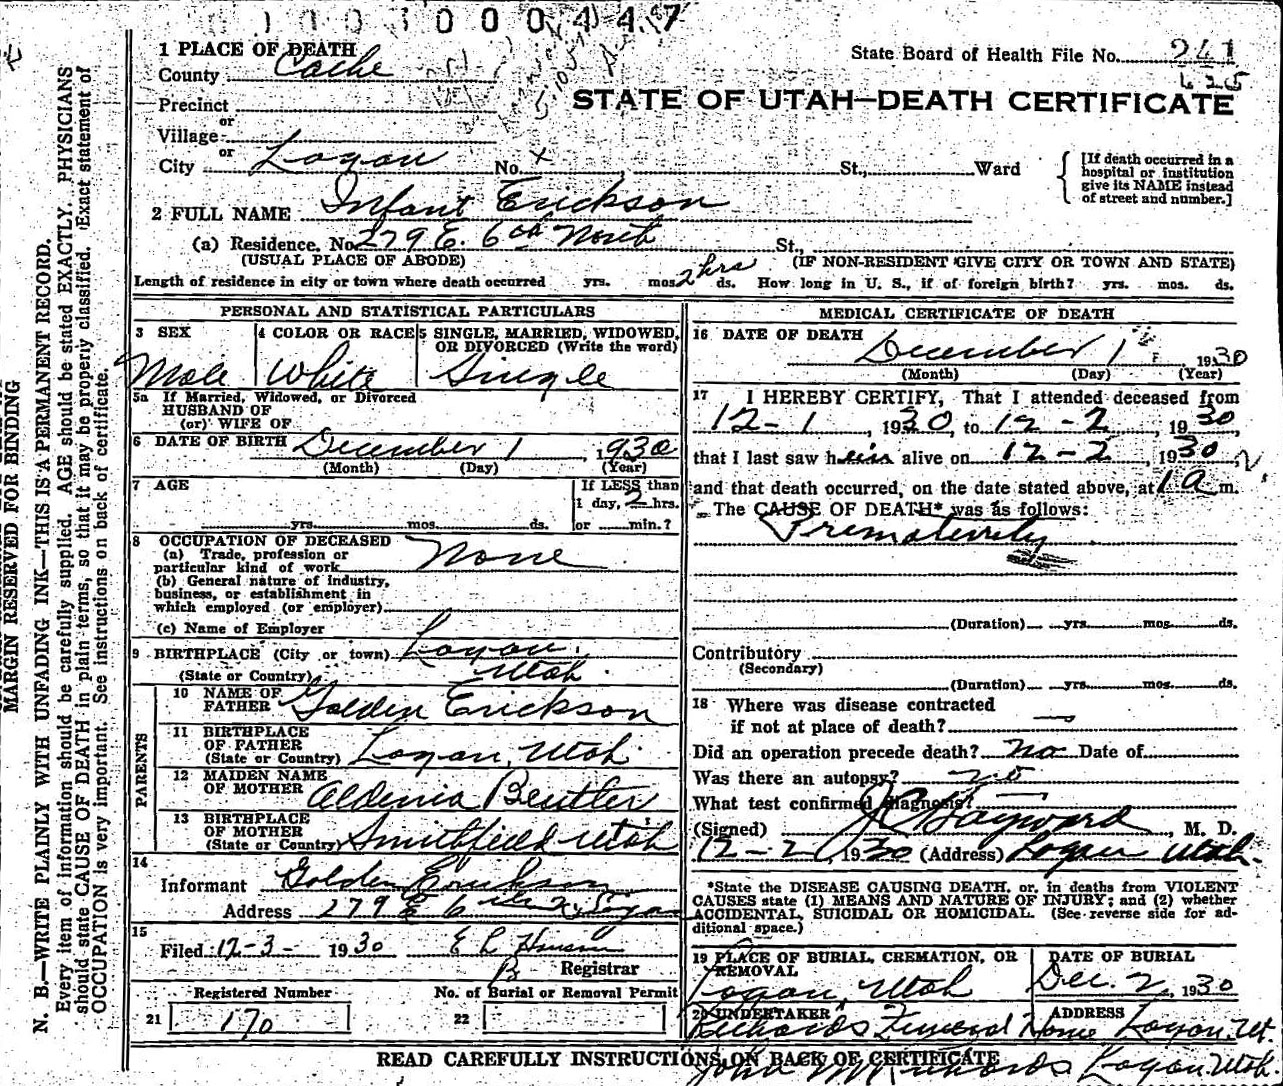 0 0 0 4 4 7
1 PLACE OF DEATH
County Cache
State Board of Health File No. 241
625
Precinct
or
Village
or
STATE OF UTAH—DEATH CERTIFICATE
City Logan No. x St., Ward
[If death occurred in a hospital or institution give its NAME instead of street and number.]
2 FULL NAME Infant Erickson
(a) Residence. No. 279 E. 6th North St.,
(USUAL PLACE OF ABODE) (IF NON-RESIDENT GIVE CITY OR TOWN AND STATE)
Length of residence in city or town where death occurred yrs. mos. 2 hrs ds. How long in U. S., if of foreign birth? yrs. mos. ds.
PERSONAL AND STATISTICAL PARTICULARS
3 SEX Male
4 COLOR OR RACE White
5 SINGLE, MARRIED, WIDOWED, OR DIVORCED (Write the word) Single
5a If Married, Widowed, or Divorced
HUSBAND OF
(or) WIFE OF
6 DATE OF BIRTH December 1, 1930
(Month) (Day) (Year)
7 AGE
yrs. mos. ds.
If LESS than
1 day, 2 hrs.
or min.?
8 OCCUPATION OF DECEASED
(a) Trade, profession or
particular kind of work None
(b) General nature of industry,
business, or establishment in
which employed (or employer)
(c) Name of Employer
9 BIRTHPLACE (City or town) Logan,
(State or Country) Utah.
PARENTS
10 NAME OF FATHER Golden Erickson
11 BIRTHPLACE OF FATHER (State or Country) Logan, Utah.
12 MAIDEN NAME OF MOTHER Aldenia Beutler
13 BIRTHPLACE OF MOTHER (State or Country) Smithfield Utah
14
Informant Golden Erickson
Address 279 E 6 N Logan
15
Filed 12-3- 1930 E L Hansen
Registrar
Registered Number
21 170
No. of Burial or Removal Permit
22
MEDICAL CERTIFICATE OF DEATH
16 DATE OF DEATH
December 1 1930
(Month) (Day) (Year)
17 I HEREBY CERTIFY, That I attended deceased from
12-1, 1930, to 12-2, 1930,
that I last saw him alive on 12-2, 1930,
and that death occurred, on the date stated above, at 1 a m.
The CAUSE OF DEATH* was as follows:
Prematurity
(Duration) yrs. mos. ds.
Contributory
(Secondary)
(Duration) yrs. mos. ds.
18 Where was disease contracted
if not at place of death? —
Did an operation precede death? no Date of
Was there an autopsy? no
What test confirmed diagnosis? —
(Signed) J C Hayward, M. D.
12-2, 1930 (Address) Logan Utah.
*State the DISEASE CAUSING DEATH, or, in deaths from VIOLENT
CAUSES state (1) MEANS AND NATURE OF INJURY; and (2) whether
ACCIDENTAL, SUICIDAL OR HOMICIDAL. (See reverse side for ad-
ditional space.)
19 PLACE OF BURIAL, CREMATION, OR REMOVAL
Logan, Utah
DATE OF BURIAL
Dec. 2, 1930
20 UNDERTAKER ADDRESS
Richards Funeral Home Logan. Ut.
John M Richards Logan. Utah.
READ CAREFULLY INSTRUCTIONS ON BACK OF CERTIFICATE
MARGIN RESERVED FOR BINDING
N. B.—WRITE PLAINLY WITH UNFADING INK—THIS IS A PERMANENT RECORD.
Every item of information should be carefully supplied. AGE should be stated EXACTLY. PHYSICIANS
should state CAUSE OF DEATH in plain terms, so that it may be properly classified. Exact statement of
OCCUPATION is very important. See instructions on back of certificate.